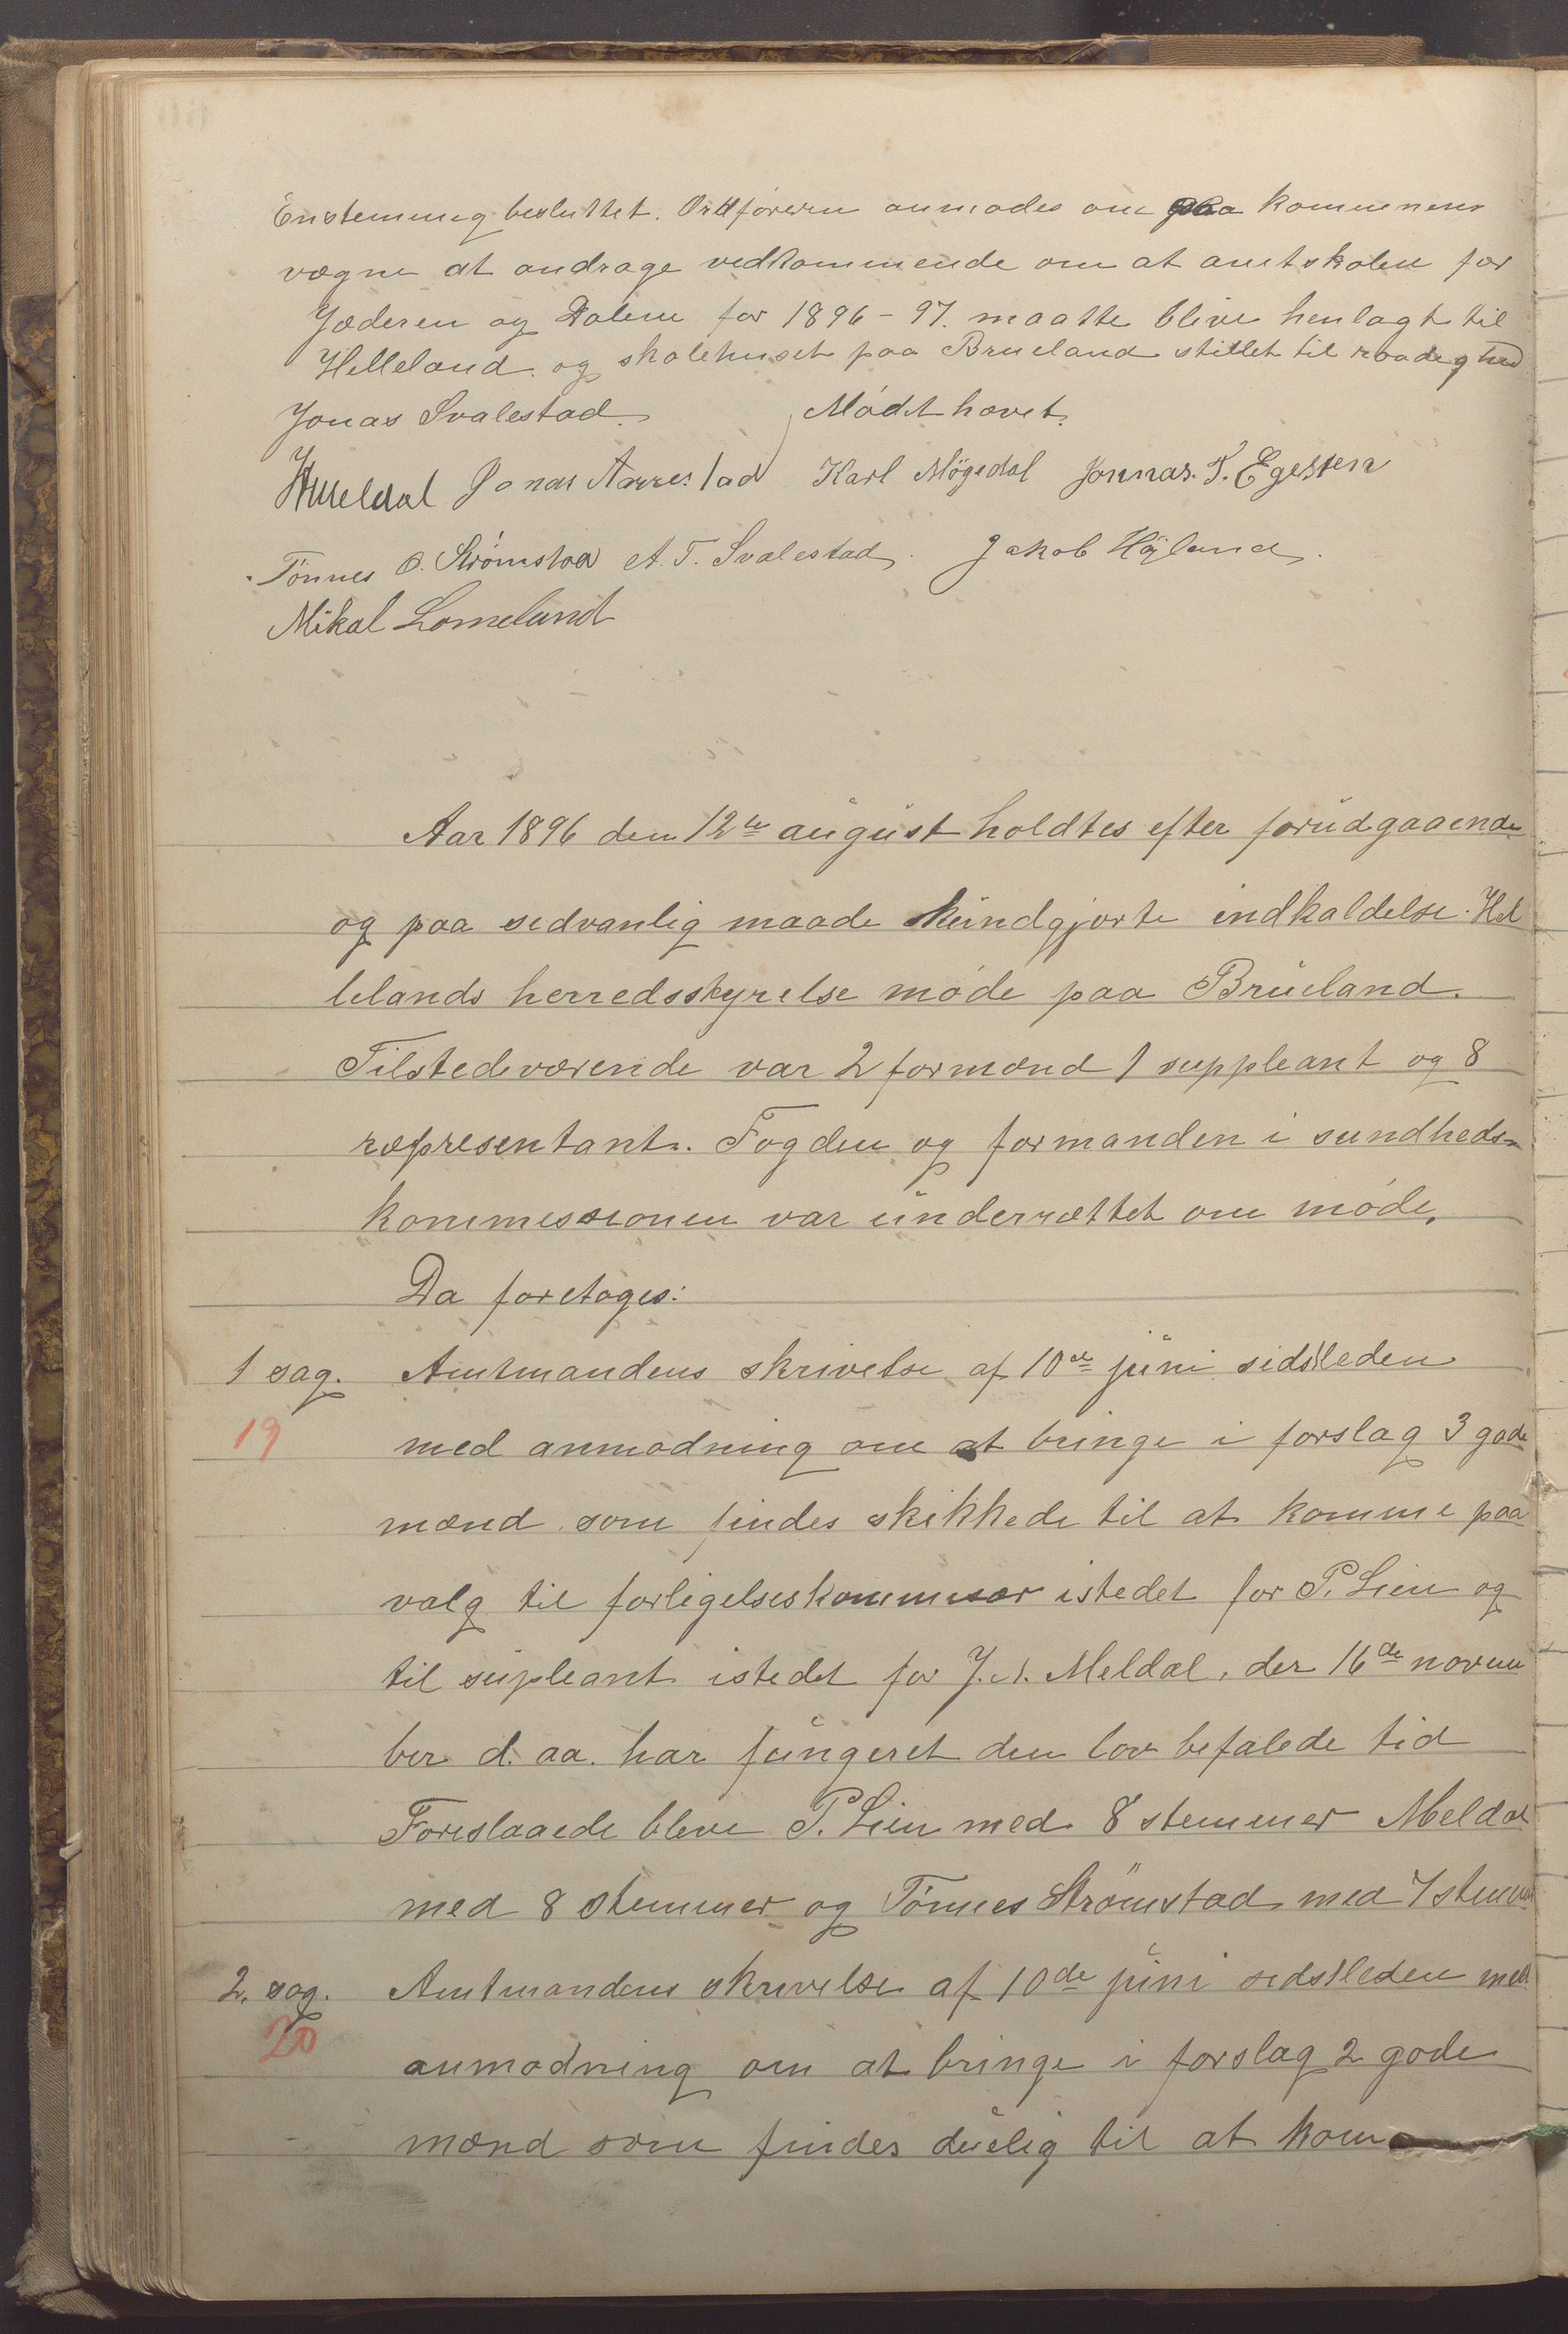 Enstemmig besluttet. Ordføreren anmodes om paa kommunens
vægne at andrage vedkommende om at amtskolen for
Jæderen og Dalene for 1896-97. maatte blive henlagt til
Helleland. og skolehuset paa Brueland stillet til raadighed
Jonas Svalestad. Mødet hævet.
Jonas Aarrestad Karl Møgedal Jonnas. T. Egessen
Tönnes O. Strömstad A. T. Svalestad. Jakob Höyland.
Mikal Lomeland
Aar 1896 den 12te august holdtes efter forudgaaende
og paa sedvanlig maade kundgjorte indkaldelse Hel
lelands herredsstyrelse møde paa Brueland.
Tilstedeværende var 2 formænd 1 suppleant og 8
ræpresentant. Fogden og formanden i sundheds-
kommessionen var underrættet om møde,
Da foretoges:
1 sag. Amtmandens skrivelse af 10de juni sidstleden
19 med anmodning om at bringe i forslag 3 gode
mænd som findes skikkede til at komme paa
valg til forligelseskommisær istedet for P. Lien og
til supleant istedet for J. A. Meldal, der 16de novem
ber d. aa. har fungeret den lov befalede tid
Foreslaaede bleve P. Lien med 8 stemmer Meldal
med 8 stemmer og Tönnes Strömstad med 7 stemmer
2. sag. Amtmandens skrivelse af 10de juni sidstleden med
20 anmodning om at bringe i forslag 2 gode
mænd som findes duelig til at kom